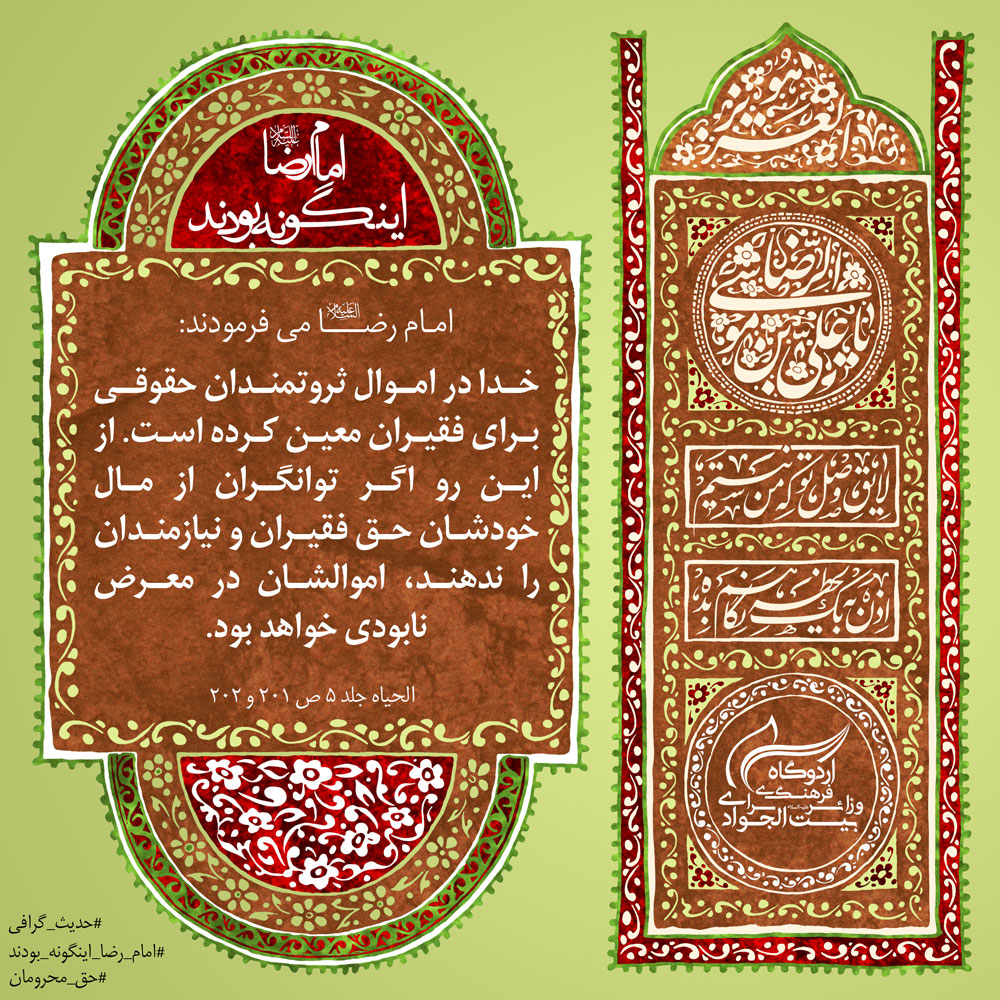 امام رضا علیه السلام
اینگونه بودند
امام رضا علیه السلام می فرمودند:
خدا در اموال ثروتمندان حقوقی
برای فقیران معین کرده است. از
این رو اگر توانگران از مال
خودشان حق فقیران و نیازمندان
را ندهند، اموالشان در معرض
نابودی خواهد بود.
الحیاه جلد ۵ ص ۲۰۱ و ۲۰۲
#حدیث_گرافی
#امام_رضا_اینگونه_بودند
#حق_محرومان
هو العزیز
یا علی بن موسی الرضا
لایق وصل تو که من نیستم
اذن به یک لحظه نگاهم بده
اردوگاه
فرهنگی
وزائرسرای
بیت الجواد علیه السلام